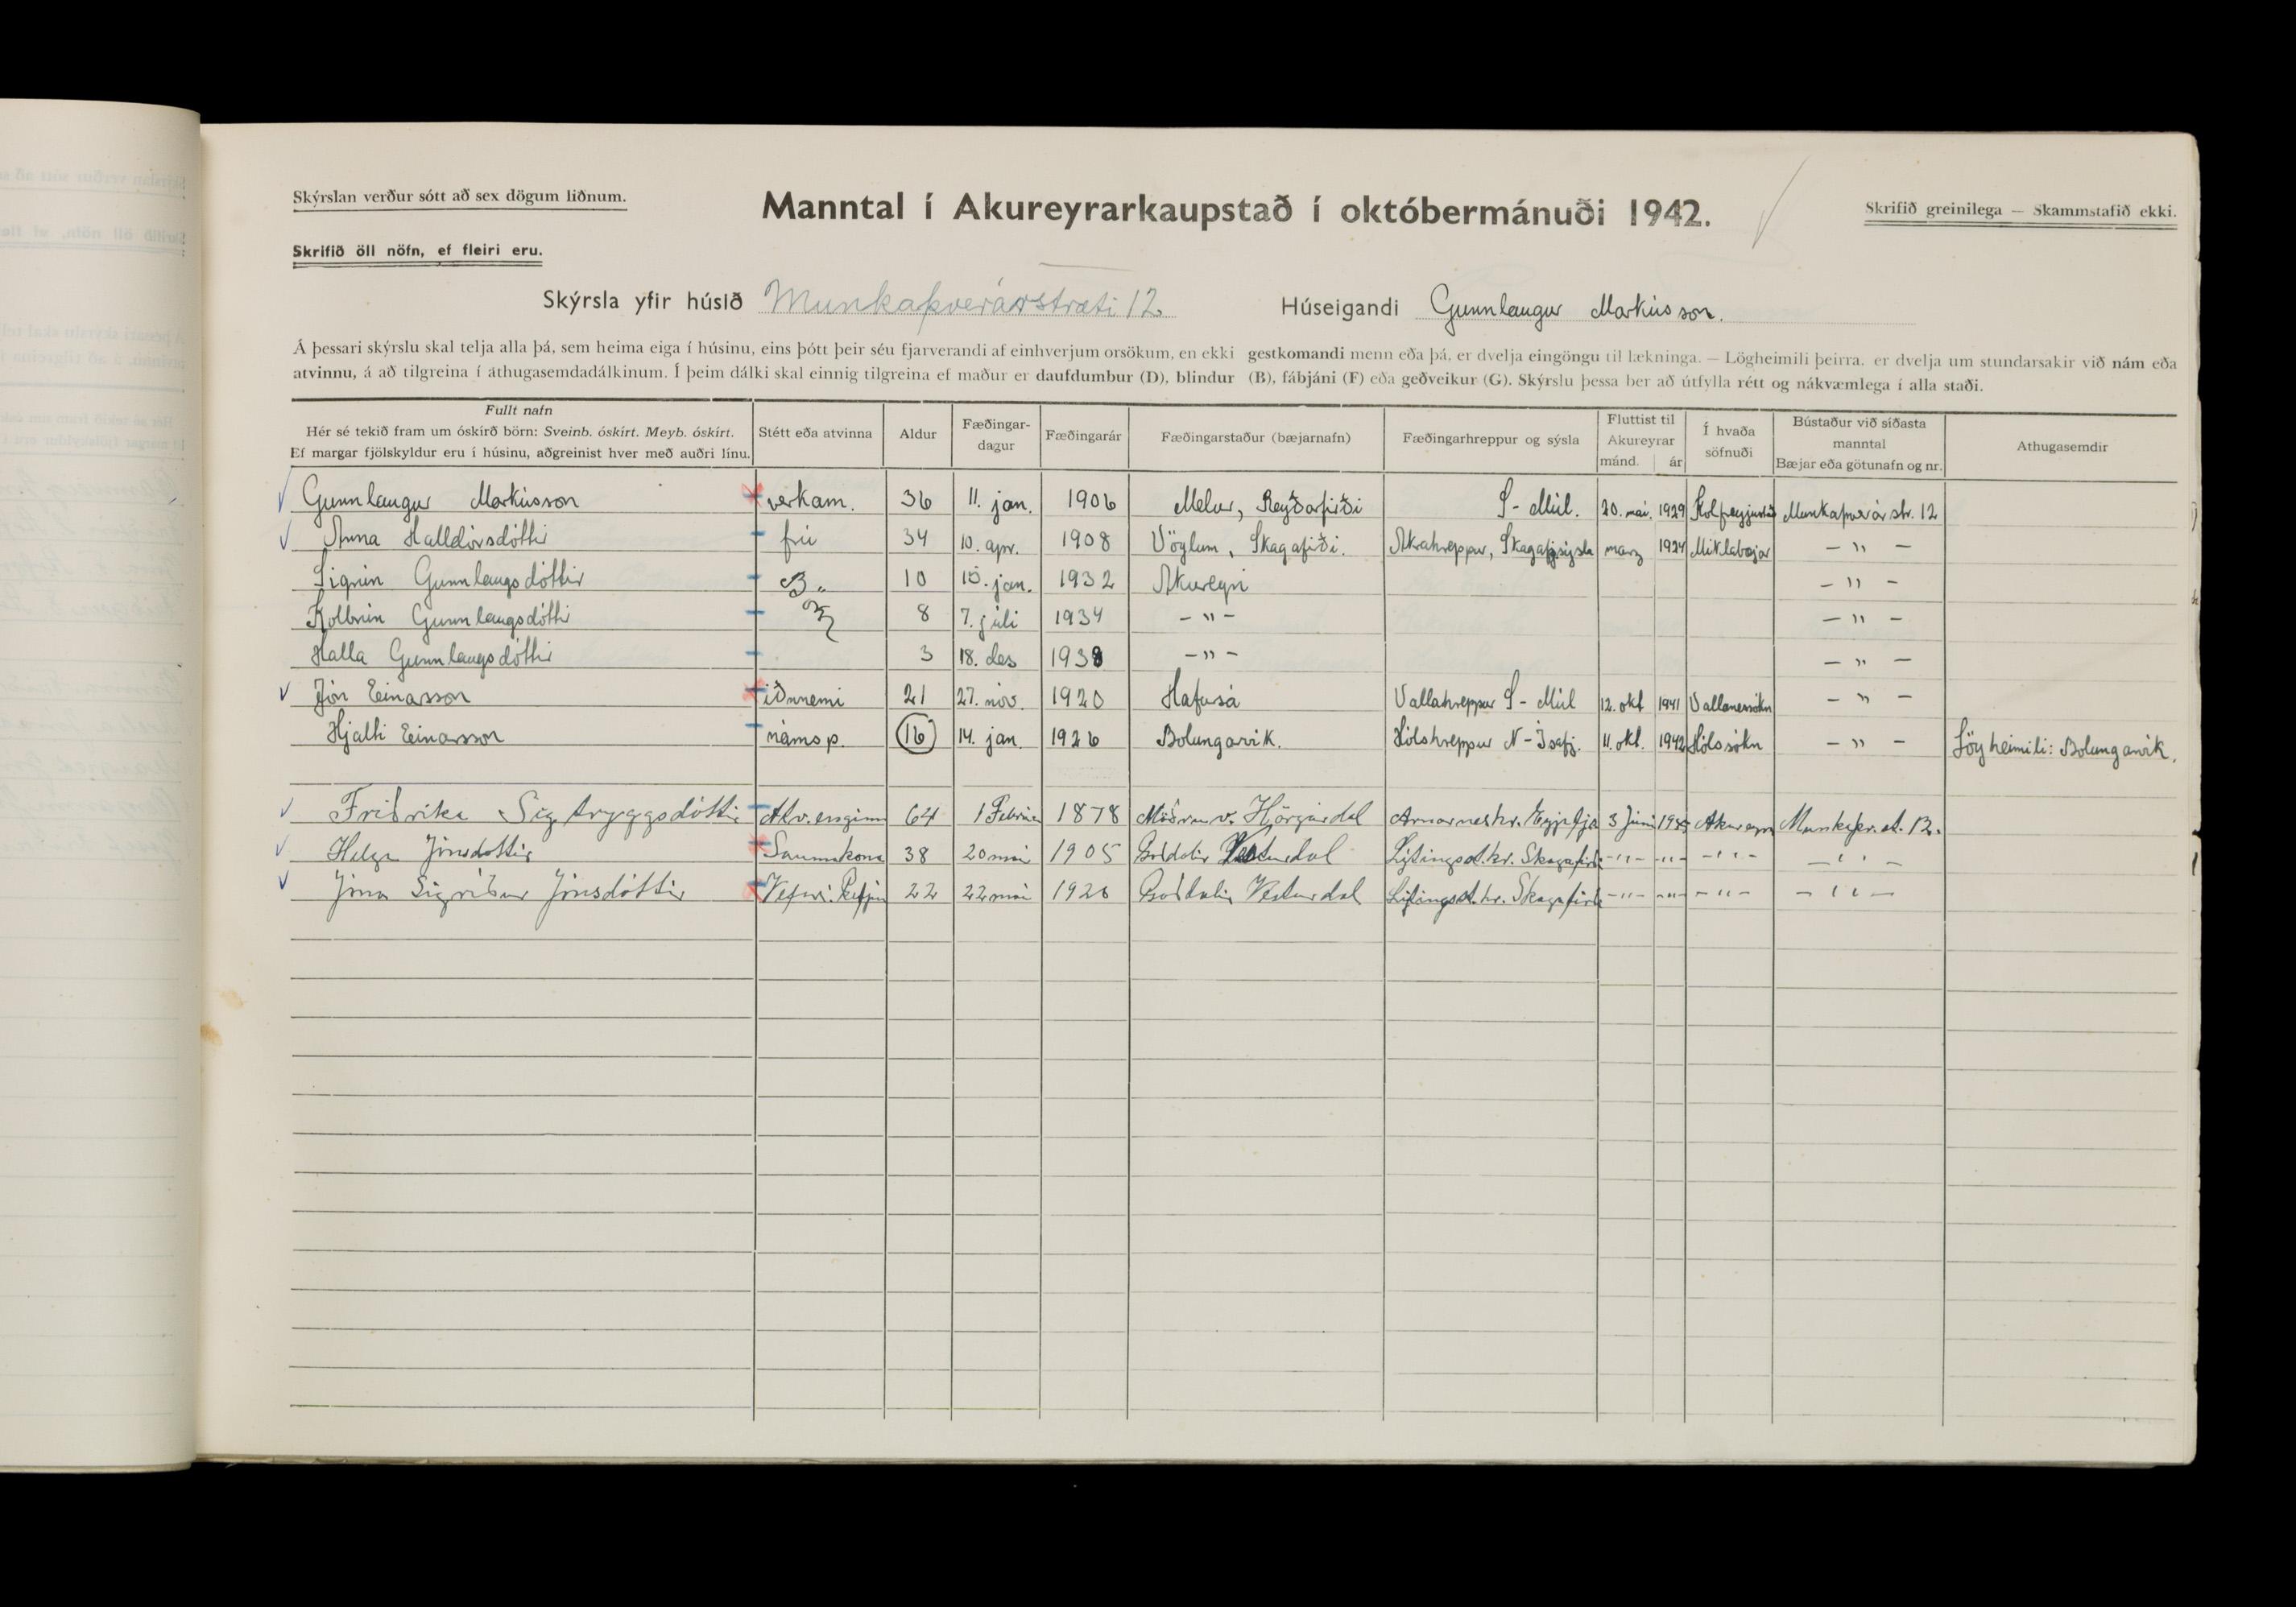 Skýrslan verður sótt að sex dögum liðnum.
Manntal í Akureyrarkaupstað í októbermánuði 1942.
Skrifið greinilega — Skammstafið ekki.
Skrifið öll nöfn, ef fleiri eru.
Skýrsla yfir húsið Munkaþverárstræti 12. Húseigandi Gunnlaugur Markússon.
Á þessari skýrslu skal telja alla þá, sem heima eiga í húsinu, eins þótt þeir séu fjarverandi af einhverjum orsökum, en ekki gestkomandi menn eða þá, er dvelja eingöngu til lækninga. — Lögheimili þeirra. er dvelja um stundarsakir við nám eða
atvinnu, á að tilgreina í athugasemdadálkinum. Í þeim dálki skal einnig tilgreina ef maður er daufdumbur (D), blindur (B), fábjáni (F) eða geðveikur (G). Skýrslu þessa ber að útfylla rétt og nákvæmlega í alla staði.
Fullt nafn
Hér sé tekið fram um óskírð börn: Sveinb. óskírt. Meyb. óskírt.
Ef margar fjölskyldur eru í húsinu, aðgreinist hver með auðri línu.
Stétt eða atvinna
Aldur
Fæðingar-
dagur
Fæðingarár
Fæðingarstaður (bæjarnafn)
Fæðingarhreppur og sýsla
Fluttist til
Akureyrar
mánd. ár
Í hvaða
söfnuði
Bústaður við síðasta
manntal
Bæjar eða götunafn og nr.
Athugasemdir
Gunnlaugur Markússon verkam. 36 11. jan. 1906 Melur, Reyðarfirði S-Múl. 20. mai. 1929 Munkaþverárstr. 12
Anna Halldórsdóttir frú 34 10. apr. 1908 Vöglum, Skagafiði. Akrahreppur, Skagafj.sýsla marz 1924 Miklabæjar — " —
Sigrún Gunnlaugsdóttir 10 10. jan. 1932 Akureyri — " —
Kolbrún Gunnlaugsdóttir 8 7. júli 1934 — " — — " —
Halla Gunnlaugsdóttir 3 18. des 1938 — " — — " —
Jón Einarsson iðnnemi 21 27. nóv. 1920 Hafursá Vallahreppur S-Múl 12. okt 1941 Vallanessókn — " —
Hjalti Einarsson námsp. 16 14. jan. 1926 Bolungarvík. Hólshreppur N-Ísafj. 11. okt. 1942 Hólssókn — " — Lögheimili: Bolungarvík.
Friðrika Sigtryggsdóttir Atv. enginn 64 1 Febrúar 1878 Möðruv. Hörgárdal Arnarneshr. Eyjafja 3 Júni Akureyri Munkaþv.st. 12.
Helga Jónsdottir Saumakona 38 20 mai 1905 Goðdalir Vesturdal Lýtingsst.hr. Skagafirði — " — — " — — " — — " —
Jóna Sigríður Jónsdóttir 22 22 mai 1920 Goðdalir Vesturdal Lýtingsst.hr. Skagafirði — " — — " — — " — — " —